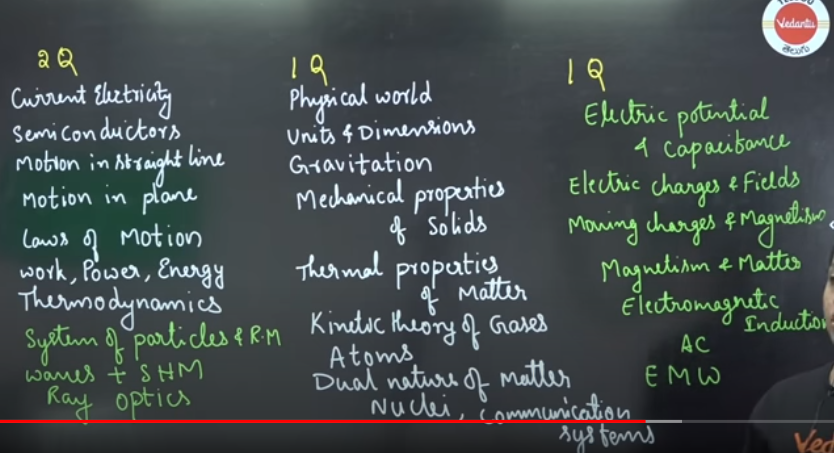 2Q
Current Electricity
Semiconductors
Motion in straight line
Motion in plane
Laws of Motion
Work, Power, Energy
Thermodynamics
System of particles & R.M
waves + SHM
Ray optics
1Q
Physical world
Units & Dimensions
Gravitation
Mechanical properties
of Solids
Thermal properties
of Matter
Kinetic theory of Gases
Atoms
Dual nature of Matter
Nuclei, Communication
systems
1Q
Electric potential
& Capacitance
Electric charges & Fields
Moving charges & Magnetism
Magnetism & Matter
Electromagnetic
Induction
AC
EMW
Vedantu
తెలుగు
Ved